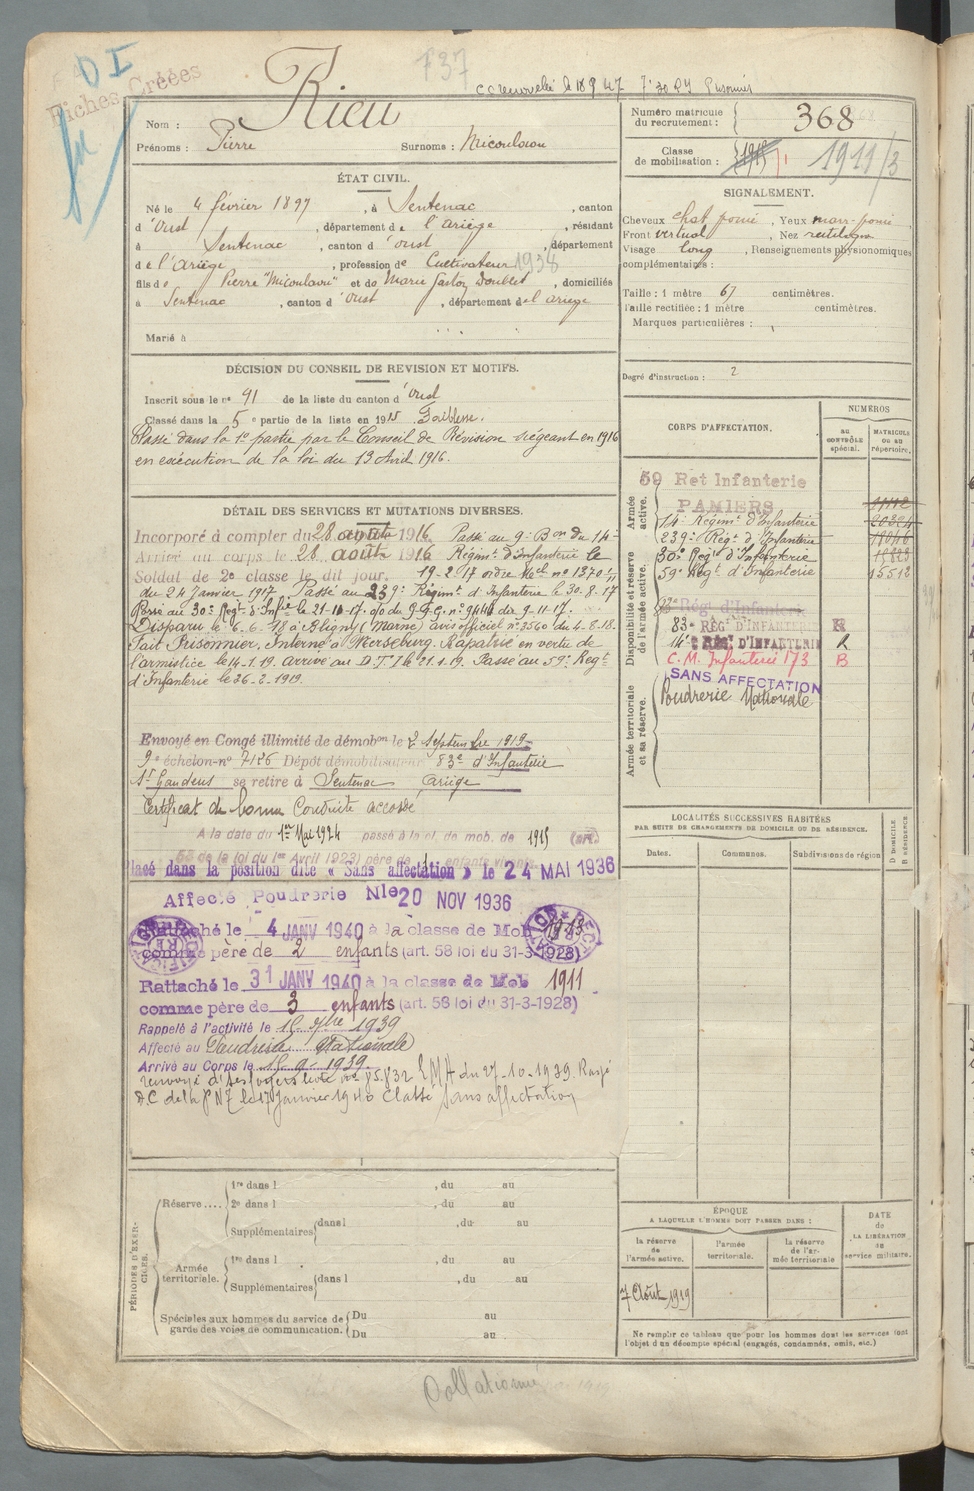 D I
Fiches Créées
F37
Rieu
Nom :
Prénoms : Pierre Surnoms : Micoulaou
Numéro matricule du recrutement : 368
Classe de mobilisation : 1915 1911/3
ÉTAT CIVIL.
Né le 4 février 1897, à Sentenac, canton
d'Oust, département de l'Ariège, résidant
à Sentenac, canton d'Oust, département
de l'Ariège, profession de Cultivateur 1938
fils de Pierre "Micoulaou" et de Marie Gaston Doublet, domiciliés
à Sentenac, canton d'Oust, département del ariege
Marié à
SIGNALEMENT.
Cheveux chat , Yeux
Front vertical, Nez rectiligne
Visage long, Renseignements physionomiques
complémentaires :
Taille : 1 mètre 67 centimètres.
Taille rectifiée : 1 mètre centimètres.
Marques particulières :
Degré d'instruction : 2
DÉCISION DU CONSEIL DE REVISION ET MOTIFS.
Inscrit sous le no 91 de la liste du canton d'Oust
Classé dans la 5e partie de la liste en 1915 Faiblesse.
Classé dans la 1e partie par le Conseil de Révision siégeant en 1916
en exécution de la loi du 13 Avril 1916.
DÉTAIL DES SERVICES ET MUTATIONS DIVERSES.
Incorporé à compter du 28 août 1916 Passé au 9e Bon du 14e
Arrivé au corps le 28 août 1916 Régimt d'Infanterie le
Soldat de 2e classe le dit jour. 19-2-17 ordre Mel no 1370/11
du 24 janvier 1917 Passé au 239e Régimt d'Infanterie le 30.8.17
Passé au 30e Regt d'Infie le 21-11-17. o/o du G.Q.G. no 9446 du 9-11-17.
Disparu le 6-6-18 à Bligny (Marne) avis officiel no 3560 du 4-8-18.
Fait Prisonnier, Interné à Merseburg. Rapatrié en vertu de
l'armistice le 14-1-19. arrivé au D.T.I le 21-1-19. Passé au 59e Regt
d'Infanterie le 26-2-1919.
Envoyé en Congé illimité de démobon le 2 septembre 1919
9e échelon no 7126 Dépôt démobilisateur 83e d'Infanterie
St Gaudens se retire à Sentenac Ariège
Certificat de bonne Conduite accordé
A la date du 1er Mai 1924 passé à la cl. de mob. de 1915 (art.
58 de la loi du 1er Avril 1923) père de 1 enfants vivants
Placé dans la position dite « Sans affectation » le 24 MAI 1936
Affecté Poudrerie Nle 20 NOV 1936
Rattaché le 4 JANV 1940 à la classe de Mob 1913
comme père de 2 enfants (art. 58 loi du 31-3-1928)
Rattaché le 31 JANV 1940 à la classe de Mob 1911
comme père de 3 enfants (art. 58 loi du 31-3-1928)
Rappelé à l'activité le 15 7bre 1939
Affecté au Poudrerie Nationale
Arrivé au Corps le 15-9-1939
renvoyé d ses foyers 85.832 EMA du 27-10-1939. Rayé
D.C de la PNT le 17 Janvier 1940 Classé Sans affectation
CORPS D'AFFECTATION.
NUMÉROS
AU CONTRÔLE spécial.
MATRICULE OU AU répertoire.
Armée active.
59 Ret Infanterie
PAMIERS
14e Régimt d'Infanterie
239e Régt d'Infanterie
30e Regt d'Infanterie
59e Regt d'Infanterie 15512
Disponibilité et réserve de l'armée active.
83e Rég d'Infanterie
83e RÉGt D'INFANTERIE
14e RÉGt D'INFANTERIE R
C.M. Infanterie 173 B
SANS AFFECTATION
Armée territoriale et sa réserve.
Poudrerie Nationale
LOCALITÉS SUCCESSIVES HABITÉES
PAR SUITE DE CHANGEMENTS DE DOMICILE OU DE RÉSIDENCE.
Dates. Communes. Subdivisions de région D DOMICILE R RÉSIDENCE
PÉRIODES D'EXERCICES.
Réserve ....
1re dans l , du au
2e dans l , du au
Supplémentaires dans l , du au
Armée territoriale.
1re dans l , du au
Supplémentaires dans l , du au
Spéciales aux hommes du service de garde des voies de communication.
Du au
Du au
ÉPOQUE
A LAQUELLE L'HOMME DOIT PASSER DANS :
la réserve de l'armée active.
l'armée territoriale.
la réserve de l'armée territoriale
DATE de LA LIBÉRATION du service militaire.
7 Août 1919
Ne remplir ce tableau que pour les hommes dont les services font
l'objet d'un décompte spécial (engagés, condamnés, omis, etc.)
Collationné